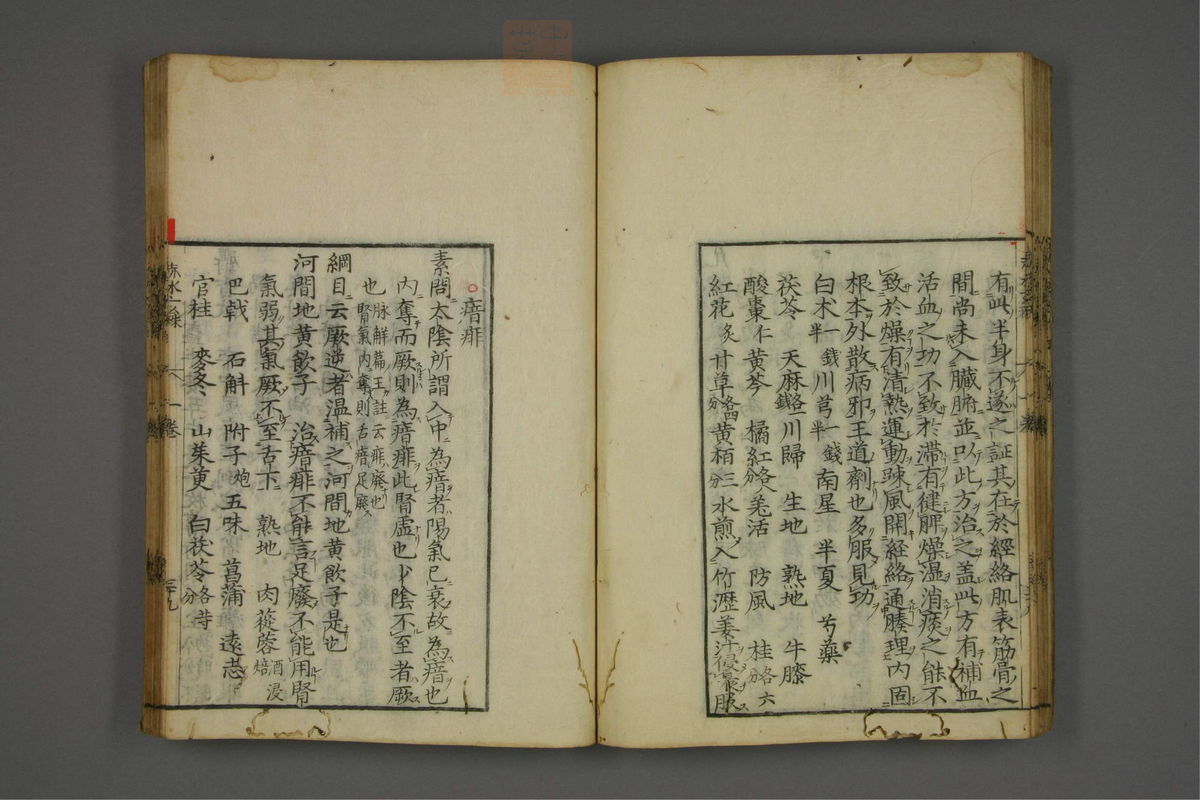 有此半身不遂之証其在於經絡肌表筋骨之
間尚未入臓腑並以此方治之盖此方有補血
活血之功不致於滞有健脾燥湿消痰之能不
致於燥有清熱運動疎風開経絡通腠理内固
根本外散病邪王道劑也多服見功
白朮一錢半 川芎一錢半 南星 半夏 芍藥
茯苓 天麻各一錢 川歸 生地 熟地 牛膝
酸棗仁 黄芩 橘紅各分 羌活 防風 桂各六分
紅花 炙甘草各四分 黄栢三分 水煎入竹瀝姜汁侵晨服
瘖痱
素問太陰所謂入中為瘖者陽氣已衰故為瘖也
内奪而厥則為瘖痱此腎虚也少陰不至者厥
也 脉解篇王註云痱廢也
腎氣内奪則舌瘖足廢
綱目云厥逆者温補之河間地黄飲子是也
河間地黄飲子 治瘖痱不能言足廢不能用腎
氣弱其氣厥不至舌下 熟地 肉蓯蓉酒浸焙
巴戟 石斛 附子炮 五味 菖蒲 遠志
官桂 麥冬 山茱萸 白茯苓各等分